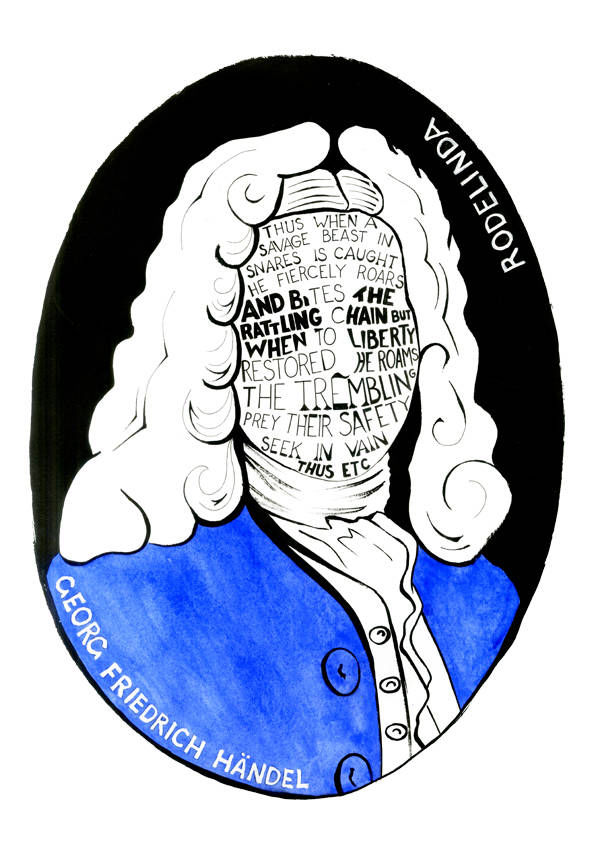 RODELINDA
THUS WHEN A
SAVAGE BEAST IN
SNARES IS CAUGHT
HE FIERCELY ROARS
AND BITES THE
RATTLING CHAIN BUT
WHEN TO LIBERTY
RESTORED HE ROAMS
THE TREMBLING
PREY THEIR SAFETY
SEEK IN VAIN
THUS ETC
GEORG FRIEDRICH HÄNDEL